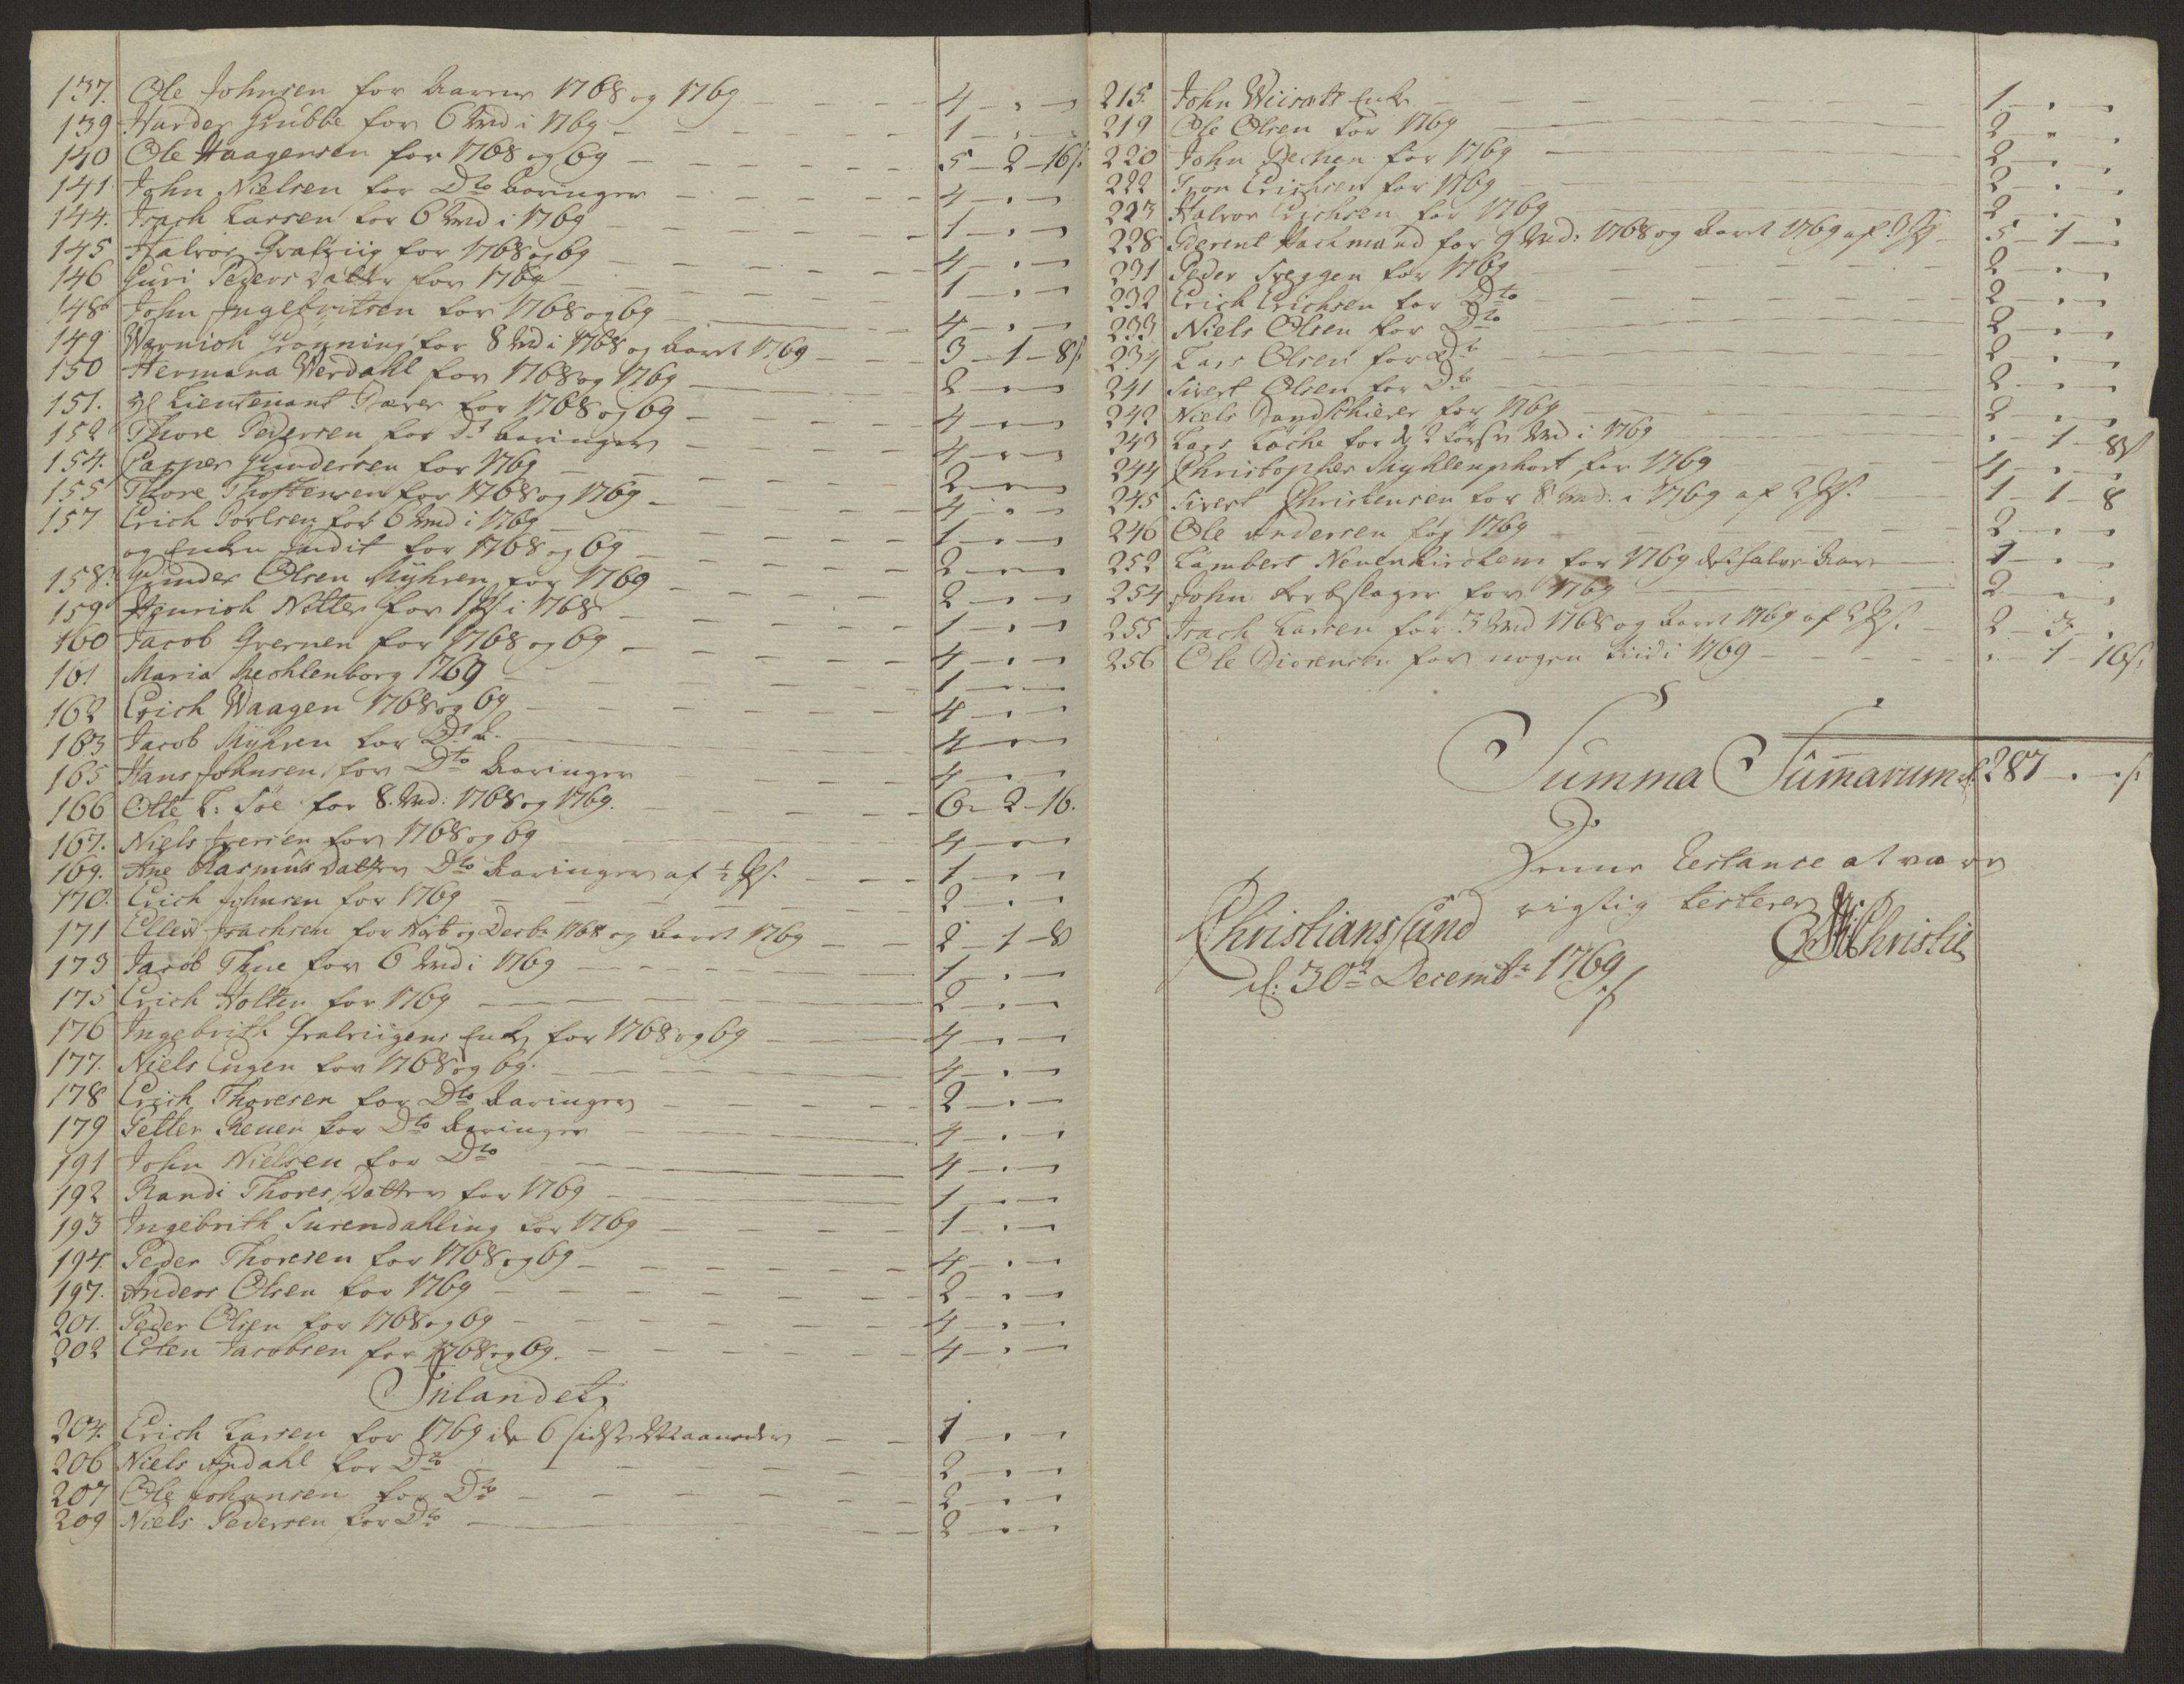 137. Ole Johnsen for Aarene 1768 og 1769 4 - . -
139 Harder Grubbe for 6 Md i 1769 1 - . -
140 Ole Haagensen for 1768 og 69 5 - 2 - 16 s.
141 John Nielsen for Dto Aaringer 4 - . -
144. Isach Larsen for 6 Md i 1769 1 - . -
145 Halvor for 1768 og 69 4 - . -
146 Guri Peders Datter for 1769 1 - . -
148 John Ingebritsen for 1768 og 69 4 - . -
149 Warnich Grønning for 8 Md i 1768 og Aaret 1769 3 - 1 - 8 s.
150 Hermana Werdahl for 1768 og 1769 2 - . -
151. Lieutenant for 1768 og 69 4 - . -
152 Thore Pedersen for Dt Aaringer 4 - . -
154. Casper Gundersen for 1769 2 - . -
155 Thore Thostensen for 1768 og 1769 4 - . -
157 Erich Povlsen for 6 Md i 1769 1 - . -
og Enken for 1768 og 69 2 - . -
158. Gunder Olsen Myhren for 1769 2 - . -
159 Henrich Notter for i 1768 1 - . -
160 Jacob for 1768 og 69 4 - . -
161 Maria Mechlenborg 1769 1 - . -
162 Erich Waagen 1768 og 69 4 - . -
163 Jacob Myhren for Dt A. 4 - . -
165 Hans Johnsen for Dto Aaringer 4 - . -
166 Otte L: Søe for 8. Md: 1768 og 1769. 6 - 2 - 16.
167. Niels Iversen for 1768 og 69 4 - . -
169. Ane Rasmus Datter Dto Aaringer af ½ 1 - . -
170. Erich Johnsen for 1769 2 - . -
171 Ellev Isachsen for og Decbr 1768 og Aaret 1769 2 - 1 - 8
173 Jacob Thue for 6 Md i 1769 1 - . -
175 Erich Holten for 1769 2 - . -
176 Ingebrith Enke for 1768 og 69 4 - . -
177. Niels Engen for 1768 og 69. 4 - . -
178 Erich Thoresen for Dto Aaringer 2 - . -
179 Petter Reuer for Dto Aaringer 4 - . -
191 John Nielsen for Dto 4 - . -
192 Randi Thores Datter for 1769 1 - . -
193 Ingebrith Surendahling for 1769 1 - . -
194. Peder Thoresen for 1768 og 69 4 - . -
197. Anders Olsen for 1769 2 - . -
201. Peder Olsen for 1768 og 69 4 - . -
202 Esten Jacobsen for 1768 og 69. 4 - . -
Inlandet
204. Erich Larsen for 1769 de 6 sidste Maaneder 1 - . -
206 Niels Apdahl for Dto 2 - . -
207 Ole Johansen for Dto 2 - . -
209 Niels Pedersen for Dto 2 - . -
215. John Enke 1 - . -
219 Ole Olsen for 1769 2 - . -
220 John for 1769 2 - . -
222 Tron Erichsen for 1769 2 - . -
223 Halvor Erichsen for 1769 2 - . -
228 Hachmand for 9 Md: 1768 og Aaret 1769 af 3 5 - 1 - .
231 Peder Sveggen for 1769 2 - . -
232 Erich Erichsen for Dto 2 - . -
233 Niels Olsen for Dto 2 - . -
234 Lars Olsen for Dt 2 - . -
241 Sivert Olsen for Dto 2 - . -
242 Niels for 1769 2 - . -
243 Lars Løche for de 2 første Md i 1769 . - 1 - 8 s
244 Christopher Myhlenphort for 1769 4 - . -
245 Sivert Christensen for 8 Md: i 1769 af 2 1 - 1 - 8
246 Ole Andersen for 1769 2 - . -
252 Lambert Neuenkirchen for 1769 det halve Aar 1 - . -
254 John for 1769 2 - . -
255 Isach Larsen for 3 Md 1768 og Aaret 1769 af 2 2 - 3 - .
256 Ole for nogen Tiid i 1769 . - 1 - 16 s.
Summa Summarum 287 - . - s.
Denne Restance at være
rigtig testerer
Christianssund
d: 30te Decembr 1769
Christie